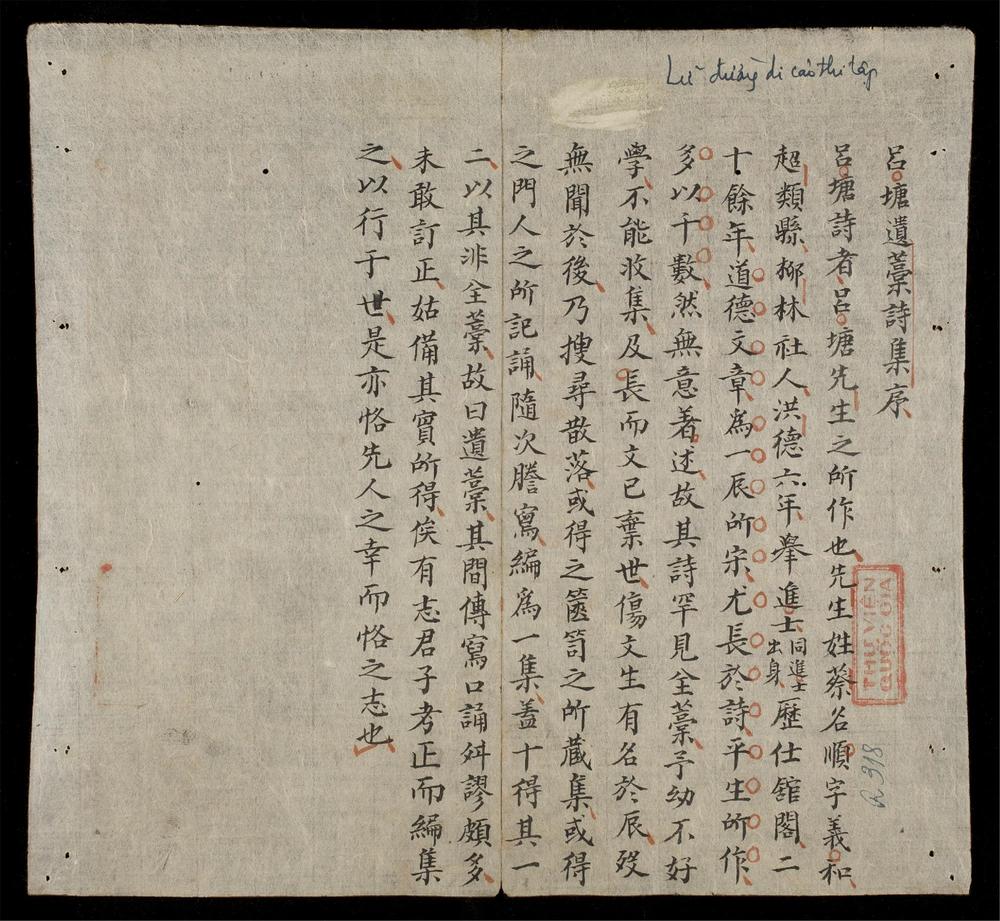 Lữ đường di cảo thi tập
呂塘遺藁詩集序
呂塘詩者呂塘先生之所作也先生姓蔡名順字義和
超類縣柳林社人洪德六年舉進士同進士出身歷仕舘閣二
十餘年道德文章爲一辰所宗尤長於詩平生所作
多以千數然無意著述故其詩罕見全藁予幼不好
學不能收集及長而文已棄世傷文生有名於辰歿
無聞於後乃搜尋散落或得之篋笥之所藏集或得
之門人之所記誦隨次謄寫編爲一集盖十得其一
二以其非全藁故曰遺藁其間傳寫口誦舛謬頗多
未敢訂正姑備其實所得俟有志君子考正而編集
之以行于世是亦恪先人之幸而恪之志也
THƯ VIỆN
QUỐC GIA
R 318